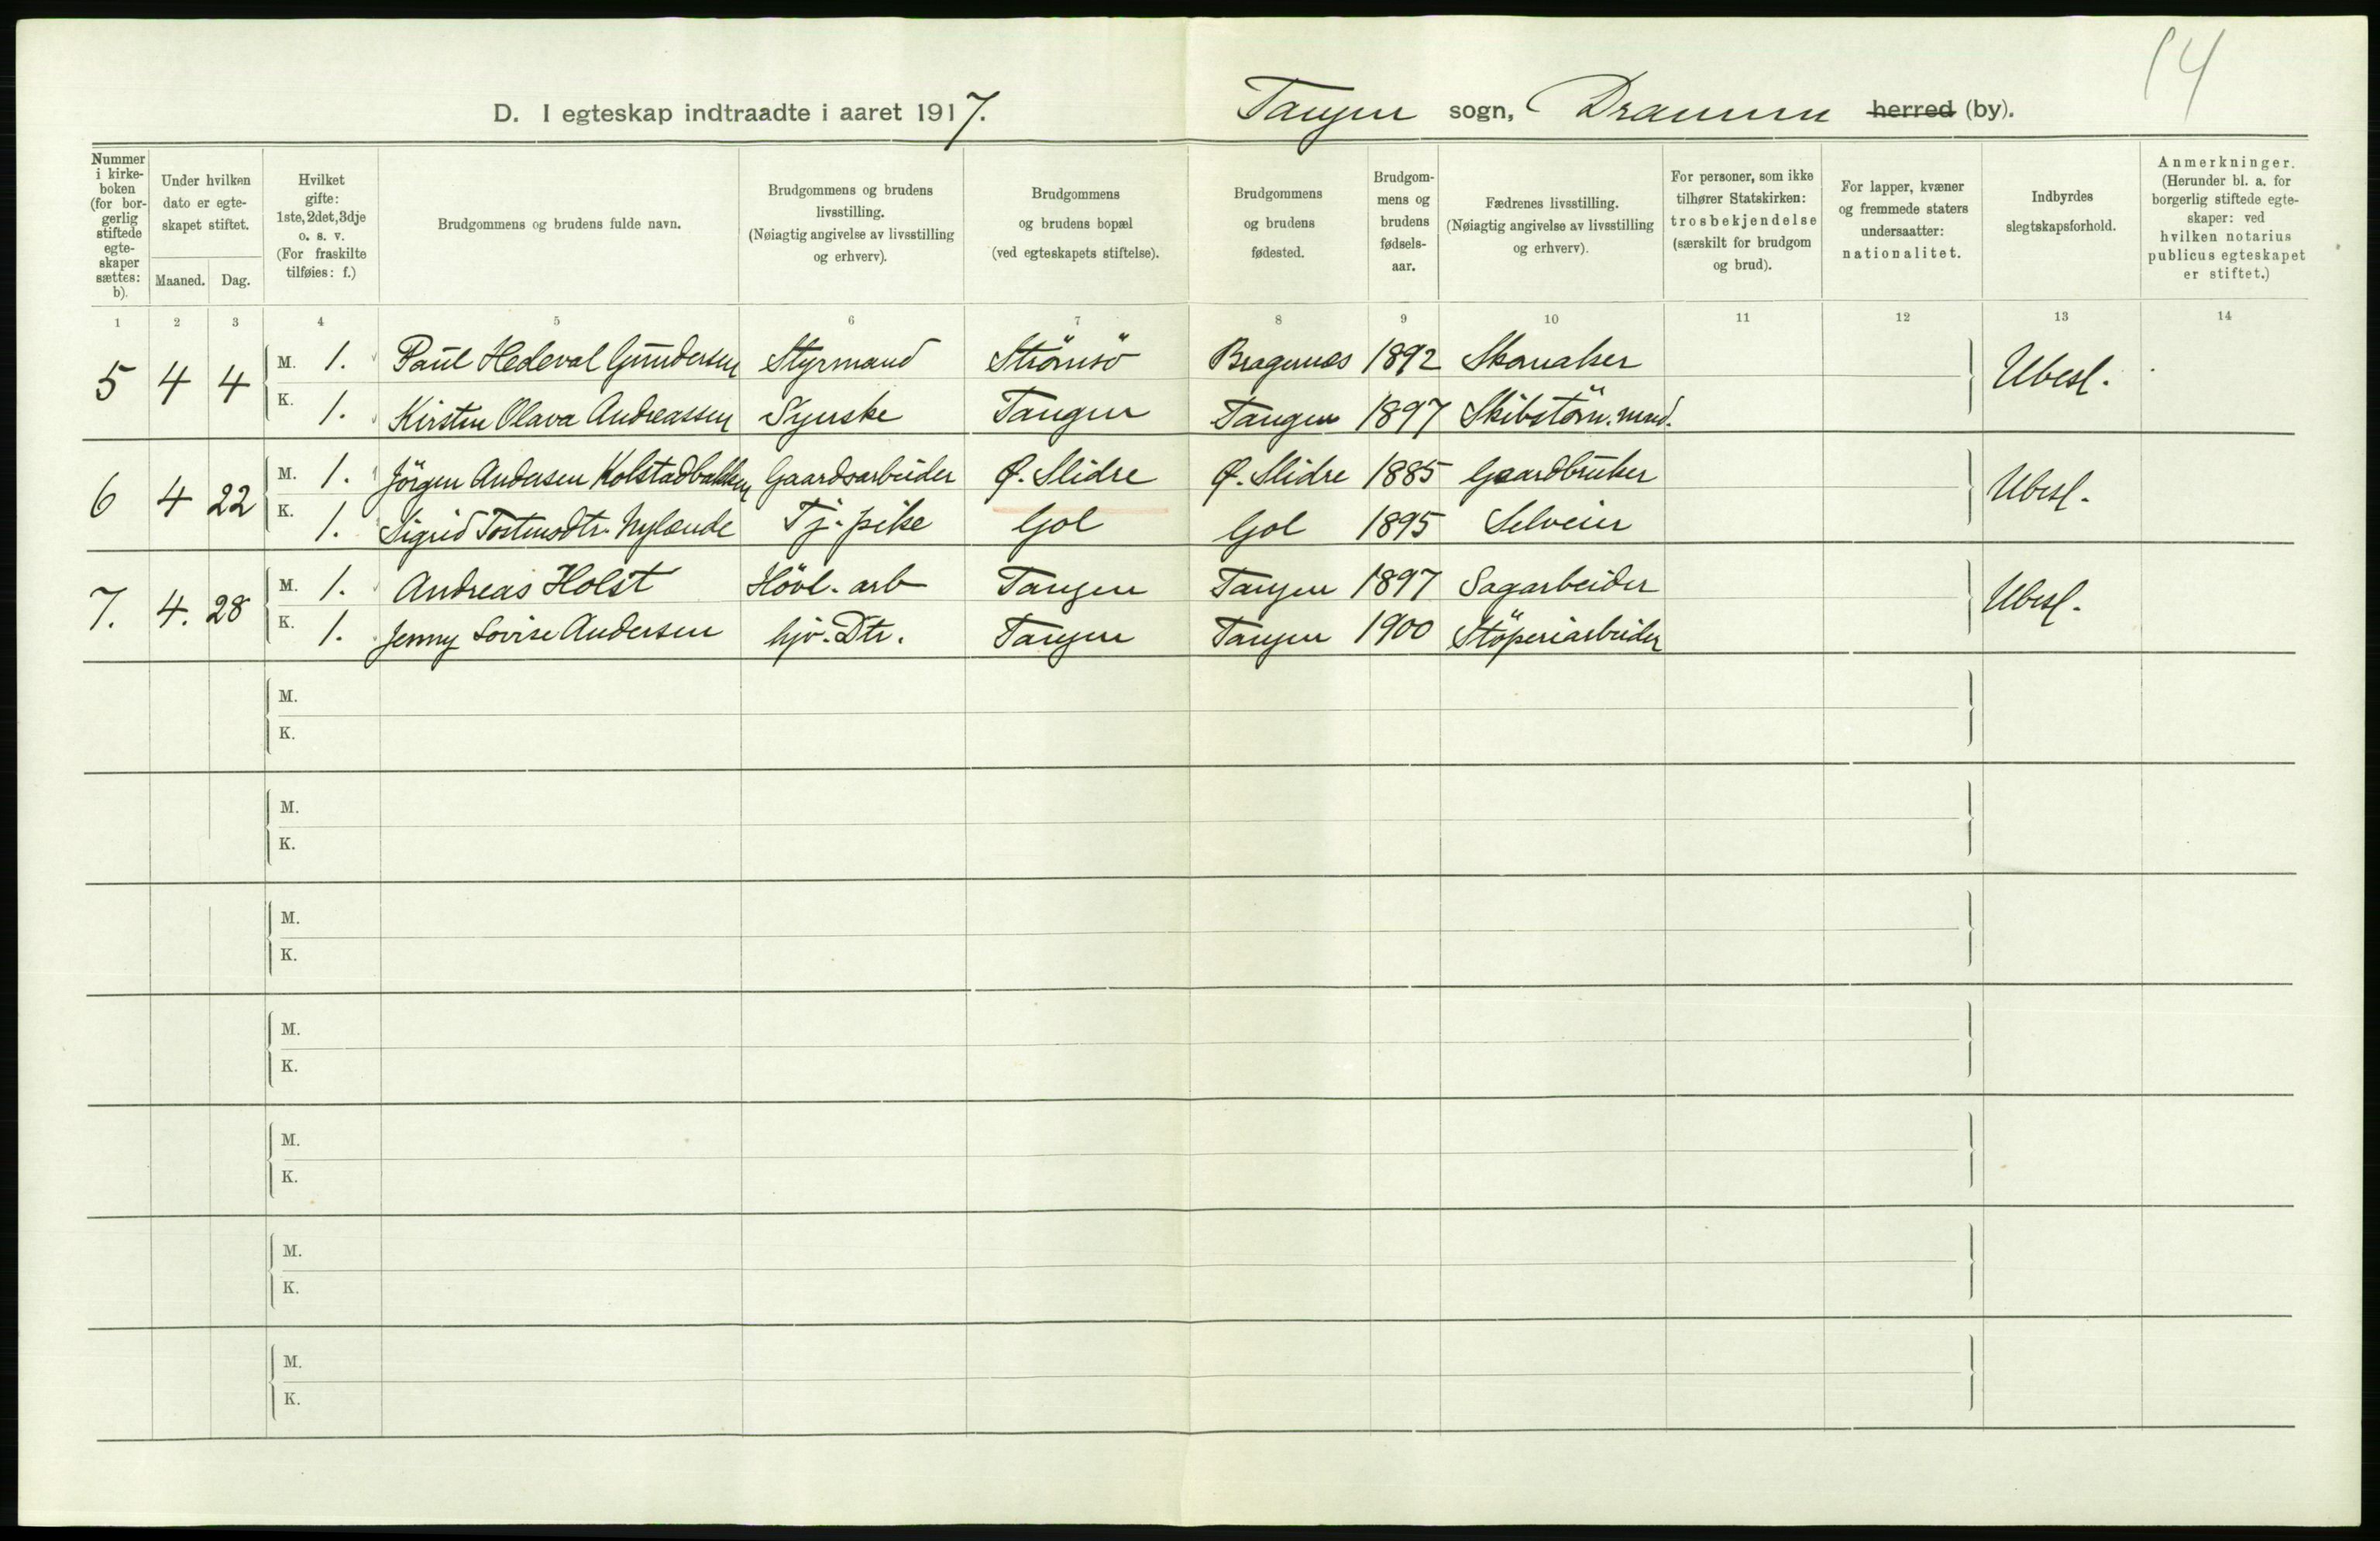 14
D. I egteskap indtraadte i aaret 1917. Tangen sogn, Drammen herred (by).
Nummer i kirkeboken (for borgerlig stiftede egteskaper sættes: b).
Under hvilken dato er egteskapet stiftet.
Maaned. Dag.
Hvilket gifte: 1ste, 2det, 3dje o. s. v. (For fraskilte tilføies: f.)
Brudgommens og brudens fulde navn.
Brudgommens og brudens livsstilling. (Nøiagtig angivelse av livsstilling og erhverv).
Brudgommens og brudens bopæl (ved egteskapets stiftelse).
Brudgommens og brudens fødested.
Brudgommens og brudens fødselsaar.
Fædrenes livsstilling. (Nøiagtig angivelse av livsstilling og erhverv).
For personer, som ikke tilhører Statskirken: trosbekjendelse (særskilt for brudgom og brud).
For lapper, kvæner og fremmede staters undersaatter: nationalitet.
Indbyrdes slegtskapsforhold.
Anmerkninger. (Herunder bl. a. for borgerlig stiftede egteskaper: ved hvilken notarius publicus egteskapet er stiftet.)
1 2 3 4 5 6 7 8 9 10 11 12 13 14
5 4 4 M. 1. Paul Hedeval Gundersen Styrmand Strömsö Bragernæs 1892 Skomaker Ubesl.
K. 1. Kirsten Olava Andreassen Syerske Tangen Tangen 1897 Skibstöm.mand.
6 4 22 M. 1. Jörgen Andersen Kolstadbakken Gaardsarbeider Ø. Slidre Ø. Slidre 1885 Gaardbruker Ubesl.
K. 1. Sigrid Tostensdtr. Nylænde Tj. pike Gol Gol 1895 Selveier
7. 4. 28 M. 1. Andreas Holst Hövl. arb Tangen Tangen 1897 Sagarbeider Ubesl.
K. 1. Jenny Lovise Andersen hjv. Dtr. Tangen Tangen 1900 Stöperiarbeider
M.
K.
M.
K.
M.
K.
M.
K.
M.
K.
M.
K.
M.
K.